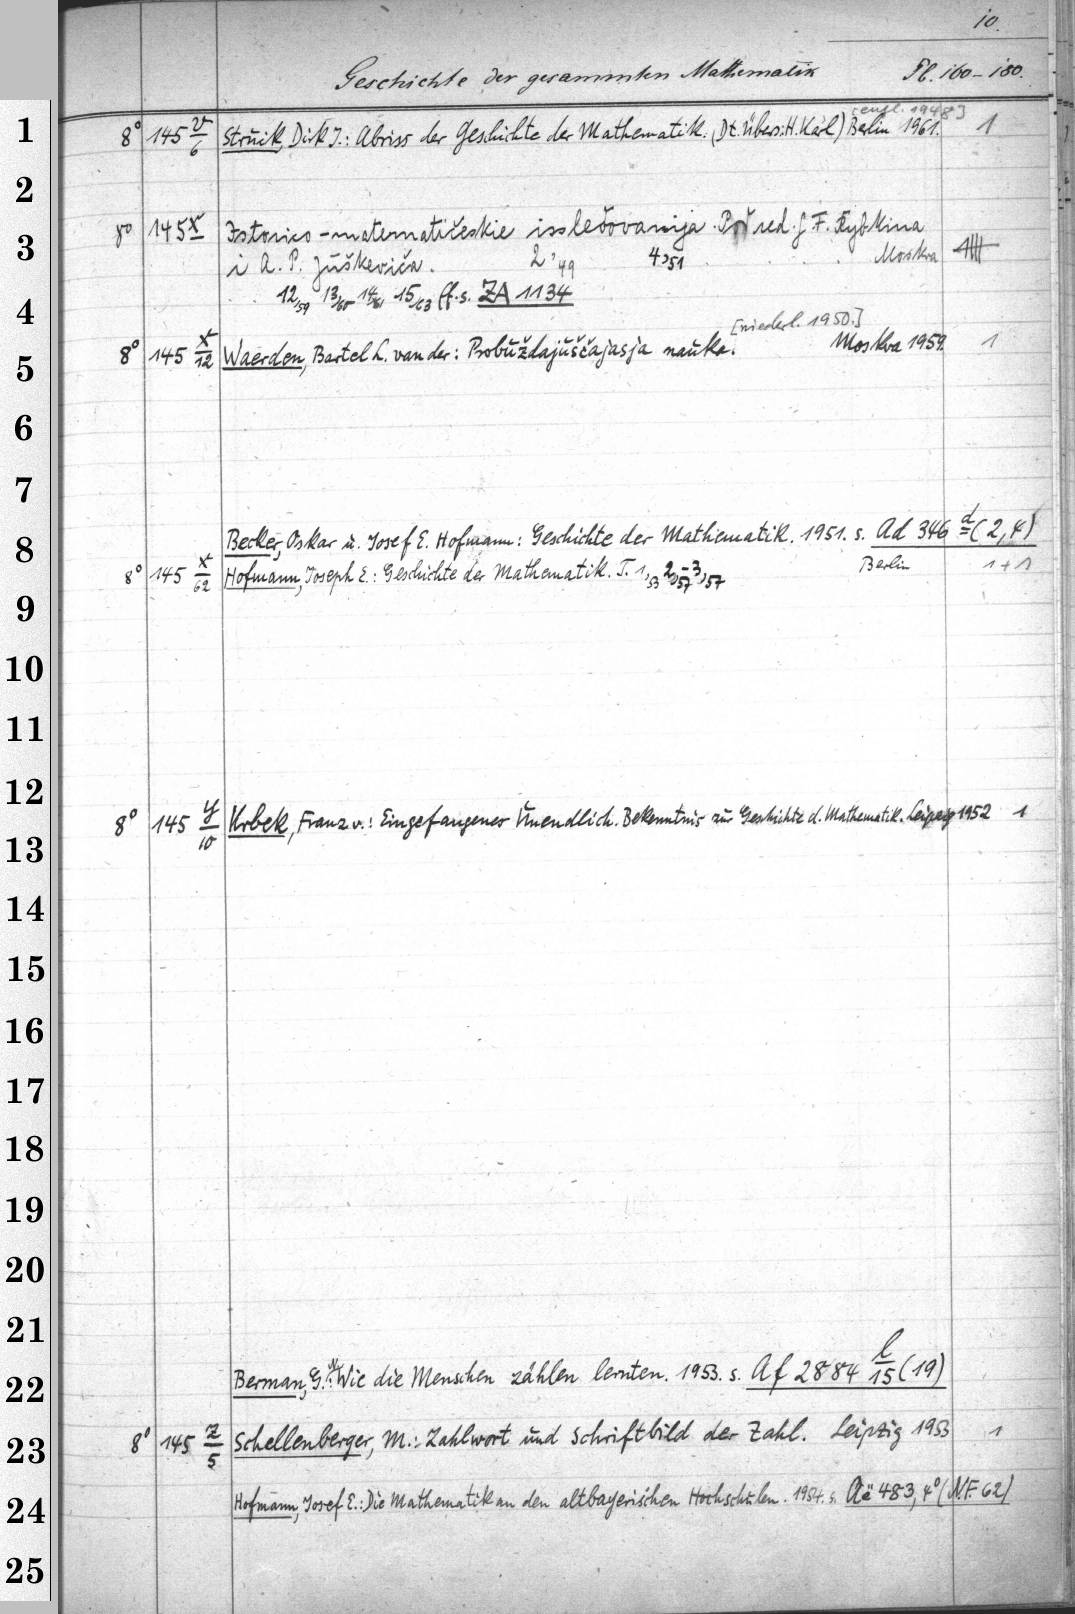 10.
Geschichte der gesammten Mathematik Pl. 160-180.
[engl. 1948]
1 8° 145 v/6 Struik, Dirk J.: Abriss der Geschichte der Mathematik. (Dt. Übers: H. Karl) Berlin 1961. 1
2
8° 145 x Istorico-matematičeskie issledovanija. Pod red. G. F. Rybkina
3 i A. P. Juškeviča. 2,49 4,51 Moskva
4 12,59 13/60 14/61 15/63 ff. s. ZA 1134
[niederl. 1950.]
5 8° 145 x/12 Waerden, Bartel L. van der: Probuždajuščajasja nauka. Moskva 1959. 1
6
7
8 Becker, Oskar u. Josef E. Hofmann: Geschichte der Mathematik. 1951. s. Ad 346 d (2,4)
8° 145 x/62 Hofmann, Joseph E.: Geschichte der Mathematik. T. 1,53 2,57-3,57 Berlin 1+1
9
10
11
12
8° 145 y/10 Krbek, Franz v.: Eingefangenes Unendlich. Bekenntnis zur Geschichte d. Mathematik. Leipzig 1952 1
13
14
15
16
17
18
19
20
21
22 Berman, G. N.: Wie die Menschen zählen lernten. 1953. s. Af 2884 l/15 (19)
23 8° 145 z/5 Schellenberger, M.: Zahlwort und Schriftbild der Zahl. Leipzig 1953 1
24 Hofmann, Josef E.: Die Mathematik an den altbayerischen Hochschulen. 1954. s. Aë 483, 4° (N.F. 62)
25